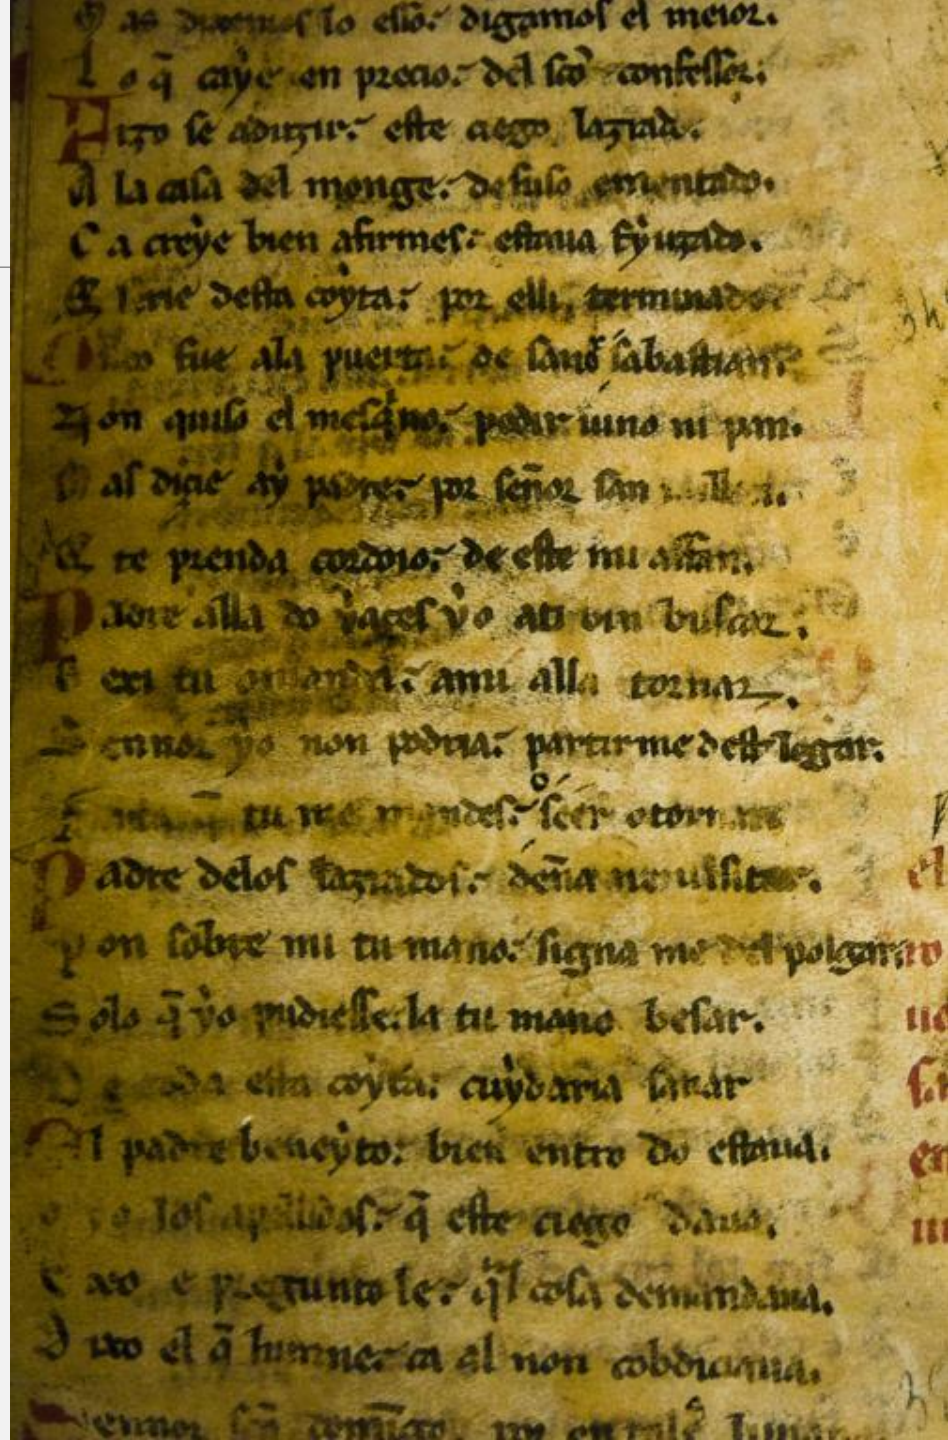 as dixiemos lo elio: digamos el meior.
Lo q̄ caȳe en precio: del sc̄o confessor:
Fizo se aduzir: este ciego lazrado.
A la casa del monge: de suso ementado.
Ca creẏe bien afirmes: estaua fẏuzado.
E serie desta coẏta: por elli, terminado
fue ala puerta: de sant sabastian:
Non quiso el mesq̇no: pedir uino ni pan.
Mas dizie aẏ padre: por señor san millan.
te prenda cordoio: de este mi affan.
Padre alla do ẏazes ẏo ati vin buscar:
exi tu ami alla tornar.
Sennor ẏo non podria: partirme dest logar.
tu me mandes: seer o tornar
Padre delos lazrados: deña me uisitar.
Pon sobre mi tu mano: signa me del polgar
Solo q̄ ẏo pudiesse: la tu mano besar.
De toda esta coẏta: cuẏdaria sanar
El padre beneẏto: bien entro do estaua.
los apellidos: q̄ este ciego daua.
e pregunto le: q̄l cosa demandaua.
Dixo el q̄ lumne: ca al non cobdiciaua.
Sennor